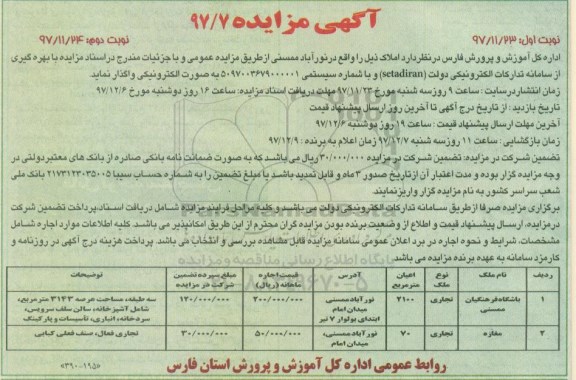 آگهی مزایده ۹۷/۷
نوبت اول: ۹۷/۱۱/۲۳
نوبت دوم: ۹۷/۱۱/۲۴
اداره کل آموزش و پرورش فارس در نظر دارد املاک ذیل را واقع در نورآباد ممسنی از طریق مزایده عمومی و با جزئیات مندرج در اسناد مزایده با بهره گیری
از سامانه تدارکات الکترونیکی دولت (setadiran) و با شماره سیستمی ۵۰۹۷۰۰۳۶۷۹۰۰۰۰۰۱ به صورت الکترونیکی واگذار نماید.
زمان انتشار در سایت: ساعت ۹ روز سه شنبه مورخ ۹۷/۱۱/۲۳ مهلت دریافت اسناد مزایده: ساعت ۱۶ روز دوشنبه مورخ ۹۷/۱۲/۶
تاریخ بازدید: از تاریخ درج آگهی تا آخرین روز ارسال پیشنهاد قیمت
آخرین مهلت ارسال پیشنهاد قیمت: ساعت ۱۹ روز دوشنبه ۹۷/۱۲/۶
زمان بازگشایی: ساعت ۱۱ روز سه شنبه ۹۷/۱۲/۷ زمان اعلام به برنده: ۹۷/۱۲/۹
تضمین شرکت در مزایده: تضمین شرکت در مزایده ۳۰/۰۰۰/۰۰۰ ریال می باشد که به صورت ضمانت نامه بانکی صادره از بانک های معتبر دولتی در
وجه مزایده گزار بوده و مدت اعتبار آن از تاریخ صدور ۳ ماه و قابل تمدید باشد یا مبلغ تضمین را به شماره حساب سیبا ۲۱۷۳۱۲۳۰۳۵۰۰۵ بانک ملی
شعب سراسر کشور به نام مزایده گزار واریز نمایند.
برگزاری مزایده صرفا از طریق سامانه تدارکات الکترونیکی دولت می باشد و کلیه مراحل فرآیند مزایده شامل دریافت اسناد، پرداخت تضمین شرکت
در مزایده، ارسال پیشنهاد قیمت و اطلاع از وضعیت برنده بودن مزایده گران محترم از این طریق امکانپذیر می باشد. کلیه اطلاعات موارد اجاره شامل
مشخصات، شرایط و نحوه اجاره در برد اعلان عمومی سامانه مزایده قابل مشاهده بررسی و انتخاب می باشد پرداخت هزینه درج آگهی در روزنامه و
کارمزد سامانه به عهده برنده مزایده می باشد.
ردیف | نام ملک | نوع ملک | اعیان مترمربع | آدرس | قیمت اجاره ماهانه (ریال) | مبلغ سپرده تضمین شرکت در مزایده | توضیحات
۱ | باشگاه فرهنگیان ممسنی | تجاری | ۲۱۰۰ | نورآباد ممسنی میدان امام ابتدای بولوار ۷ تیر | ۲۰۰/۰۰۰/۰۰۰ | ۱۲۰/۰۰۰/۰۰۰ | سه طبقه، مساحت عرصه ۳۱۴۳ مترمربع، شامل آشپزخانه، سالن سلف سرویس، سردخانه، انباری، تأسیسات و پارکینگ
۲ | مغازه | تجاری | ۷۰ | نورآباد ممسنی، میدان امام | ۵۰/۰۰۰/۰۰۰ | ۳۰/۰۰۰/۰۰۰ | تجاری فعال، صنف فعلی کبابی
روابط عمومی اداره کل آموزش و پرورش استان فارس